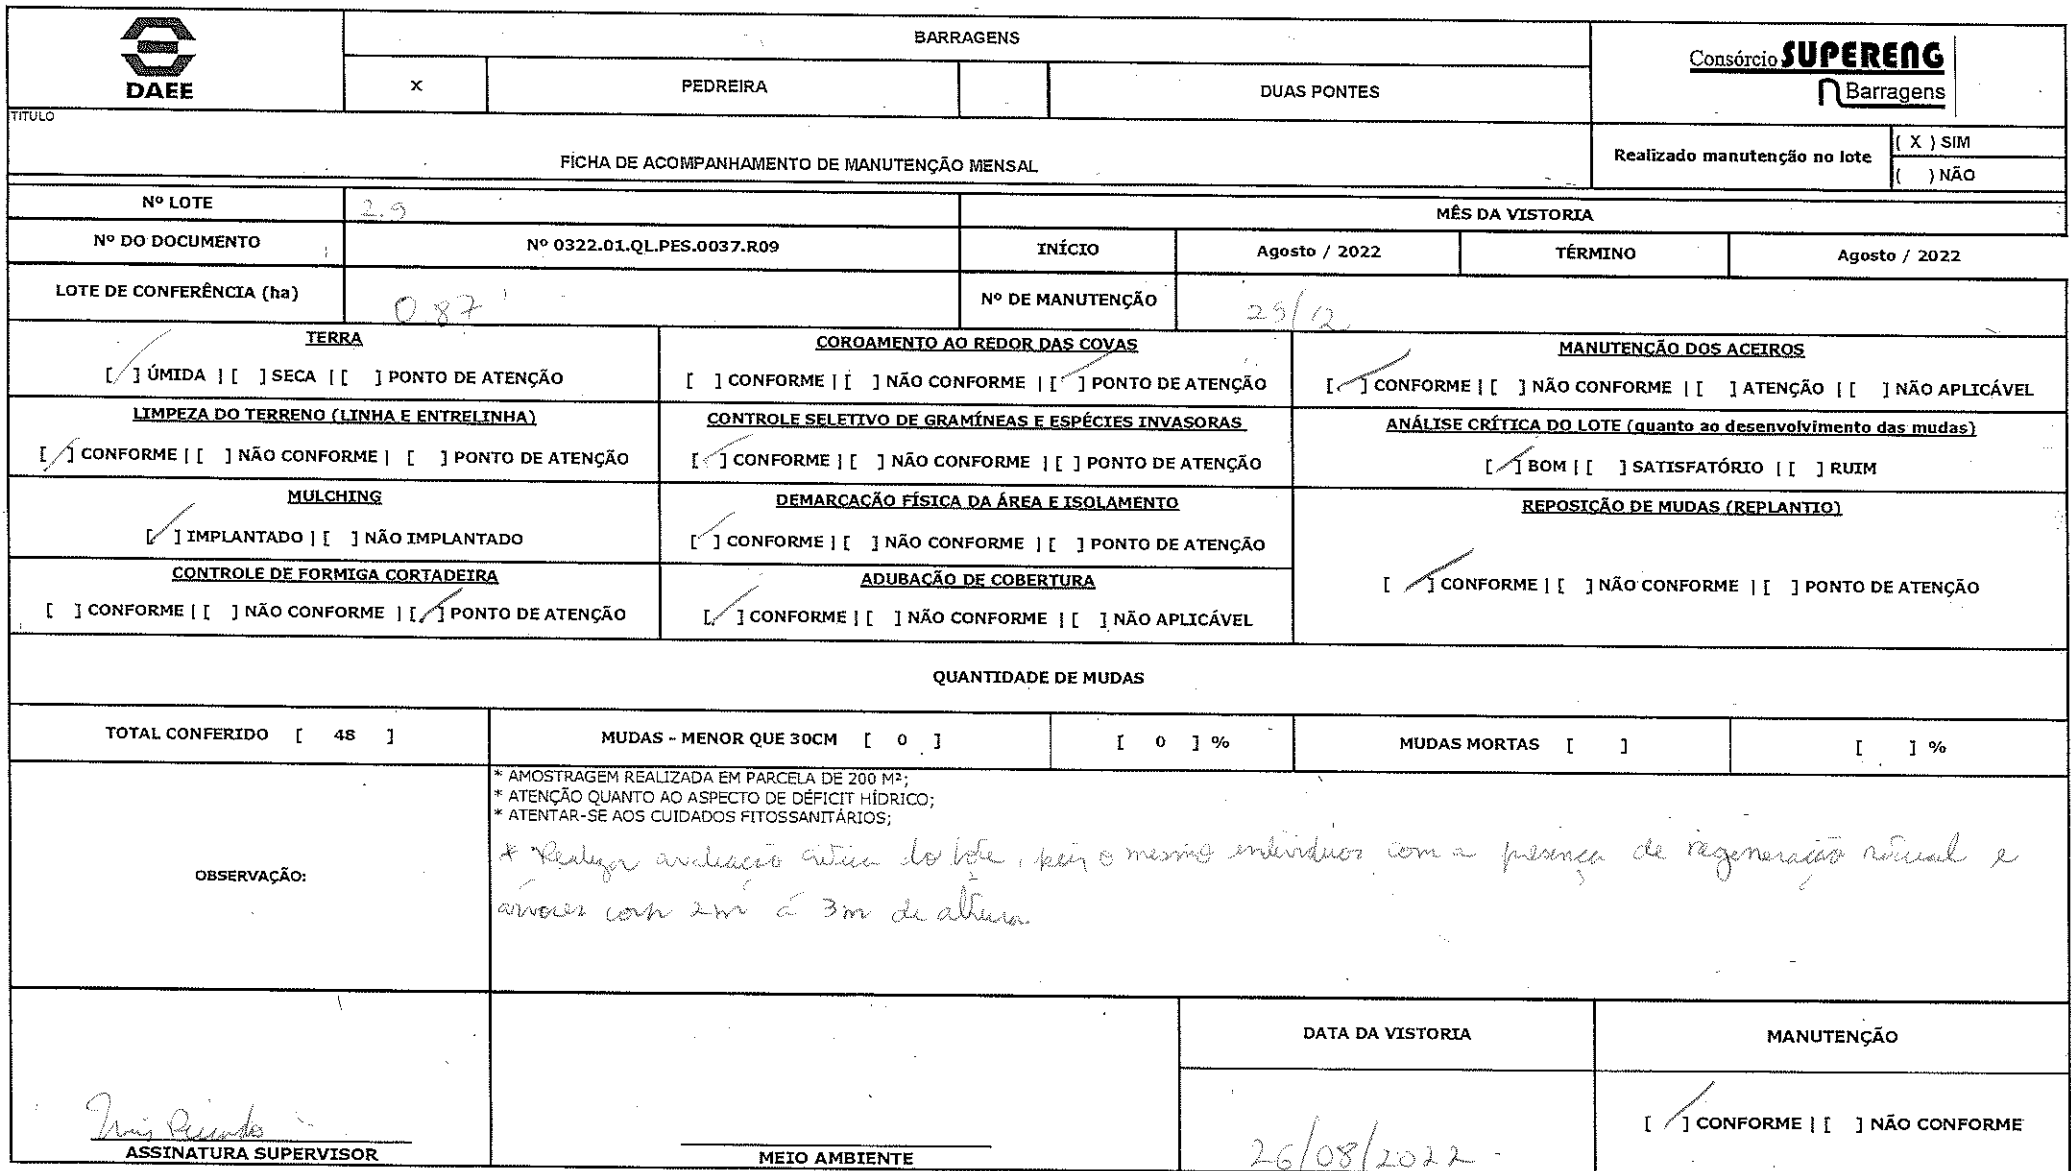 DAEE
BARRAGENS
X PEDREIRA DUAS PONTES
Consórcio SUPERENG
Barragens
TITULO
FICHA DE ACOMPANHAMENTO DE MANUTENÇÃO MENSAL
Realizado manutenção no lote
( X ) SIM
( ) NÃO
Nº LOTE 2.9
MÊS DA VISTORIA
Nº DO DOCUMENTO Nº 0322.01.QL.PES.0037.R09 INÍCIO Agosto / 2022 TÉRMINO Agosto / 2022
LOTE DE CONFERÊNCIA (ha) 0.87 Nº DE MANUTENÇÃO 29/12
TERRA
[ / ] ÚMIDA | [ ] SECA | [ ] PONTO DE ATENÇÃO
COROAMENTO AO REDOR DAS COVAS
[ ] CONFORME | [ ] NÃO CONFORME | [ / ] PONTO DE ATENÇÃO
MANUTENÇÃO DOS ACEIROS
[ / ] CONFORME | [ ] NÃO CONFORME | [ ] ATENÇÃO | [ ] NÃO APLICÁVEL
LIMPEZA DO TERRENO (LINHA E ENTRELINHA)
[ / ] CONFORME | [ ] NÃO CONFORME | [ ] PONTO DE ATENÇÃO
CONTROLE SELETIVO DE GRAMÍNEAS E ESPÉCIES INVASORAS
[ / ] CONFORME | [ ] NÃO CONFORME | [ ] PONTO DE ATENÇÃO
ANÁLISE CRÍTICA DO LOTE (quanto ao desenvolvimento das mudas)
[ / ] BOM | [ ] SATISFATÓRIO | [ ] RUIM
MULCHING
[ / ] IMPLANTADO | [ ] NÃO IMPLANTADO
DEMARCAÇÃO FÍSICA DA ÁREA E ISOLAMENTO
[ / ] CONFORME | [ ] NÃO CONFORME | [ ] PONTO DE ATENÇÃO
REPOSIÇÃO DE MUDAS (REPLANTIO)
[ / ] CONFORME | [ ] NÃO CONFORME | [ ] PONTO DE ATENÇÃO
CONTROLE DE FORMIGA CORTADEIRA
[ ] CONFORME | [ ] NÃO CONFORME | [ / ] PONTO DE ATENÇÃO
ADUBAÇÃO DE COBERTURA
[ / ] CONFORME | [ ] NÃO CONFORME | [ ] NÃO APLICÁVEL
QUANTIDADE DE MUDAS
TOTAL CONFERIDO [ 48 ] MUDAS - MENOR QUE 30CM [ 0 ] [ 0 ] % MUDAS MORTAS [ ] [ ] %
OBSERVAÇÃO:
* AMOSTRAGEM REALIZADA EM PARCELA DE 200 M²;
* ATENÇÃO QUANTO AO ASPECTO DE DÉFICIT HÍDRICO;
* ATENTAR-SE AOS CUIDADOS FITOSSANITÁRIOS;
* Realizar avaliação critica do lote, pois o mesmo individuos com a presença de regeneração natural e
arvores com 2m á 3m de altura.
DATA DA VISTORIA
MANUTENÇÃO
ASSINATURA SUPERVISOR
MEIO AMBIENTE
26/08/2022
[ / ] CONFORME | [ ] NÃO CONFORME